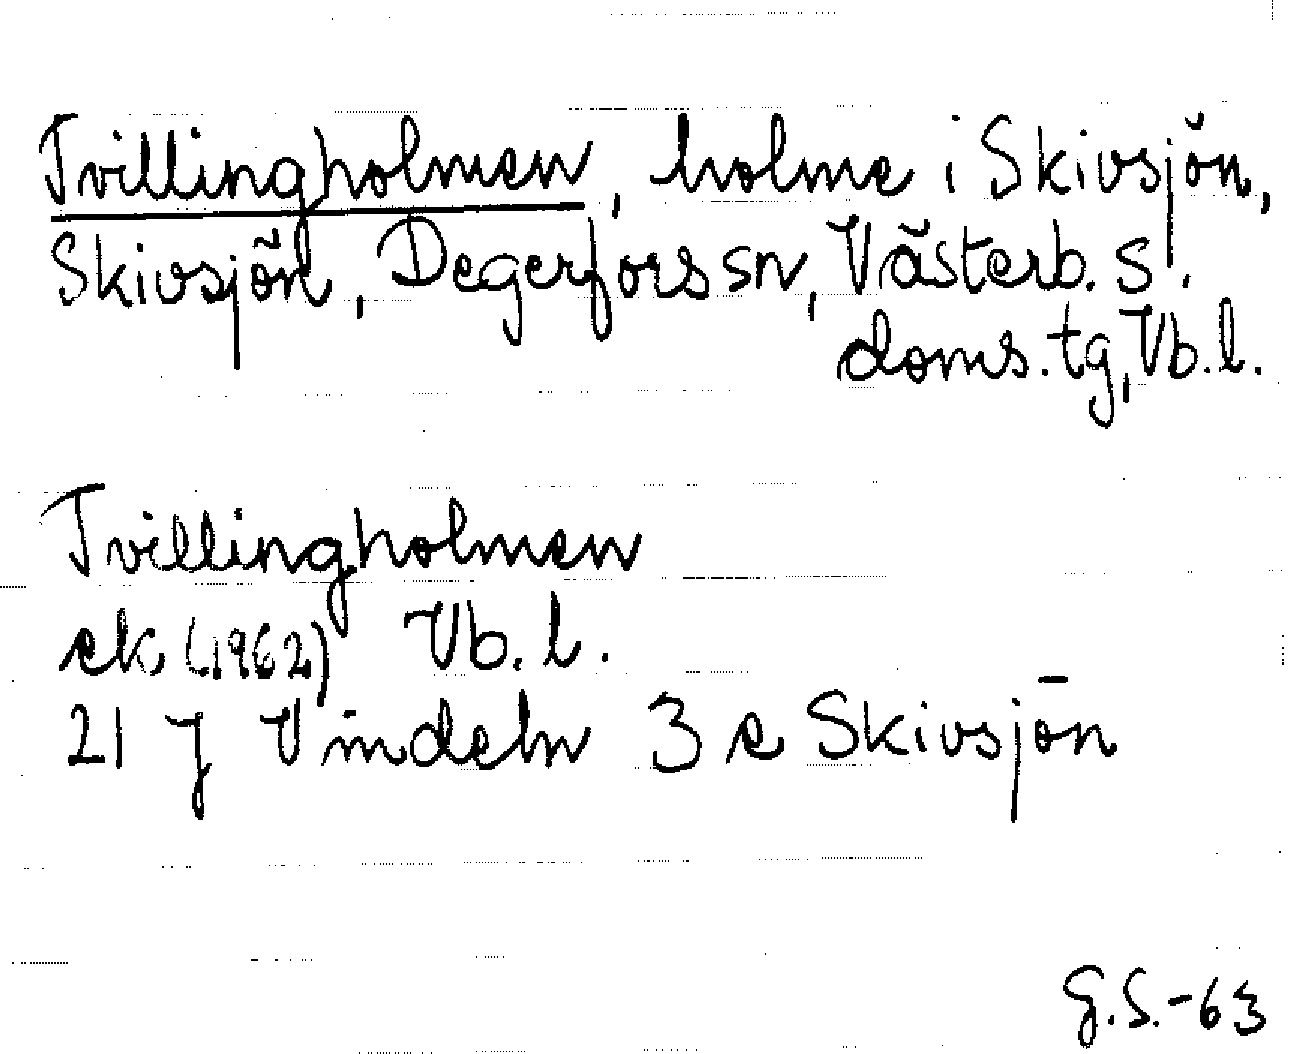 Tvillingholmen, holme i Skivsjön,
Skivsjön, Degerfors sn, Västerb. s.
doms.tg, Vb.l.
Tvillingholmen
ek (1962) Vb.l.
21 J Vindeln 3 e Skivsjön
G.S.-63